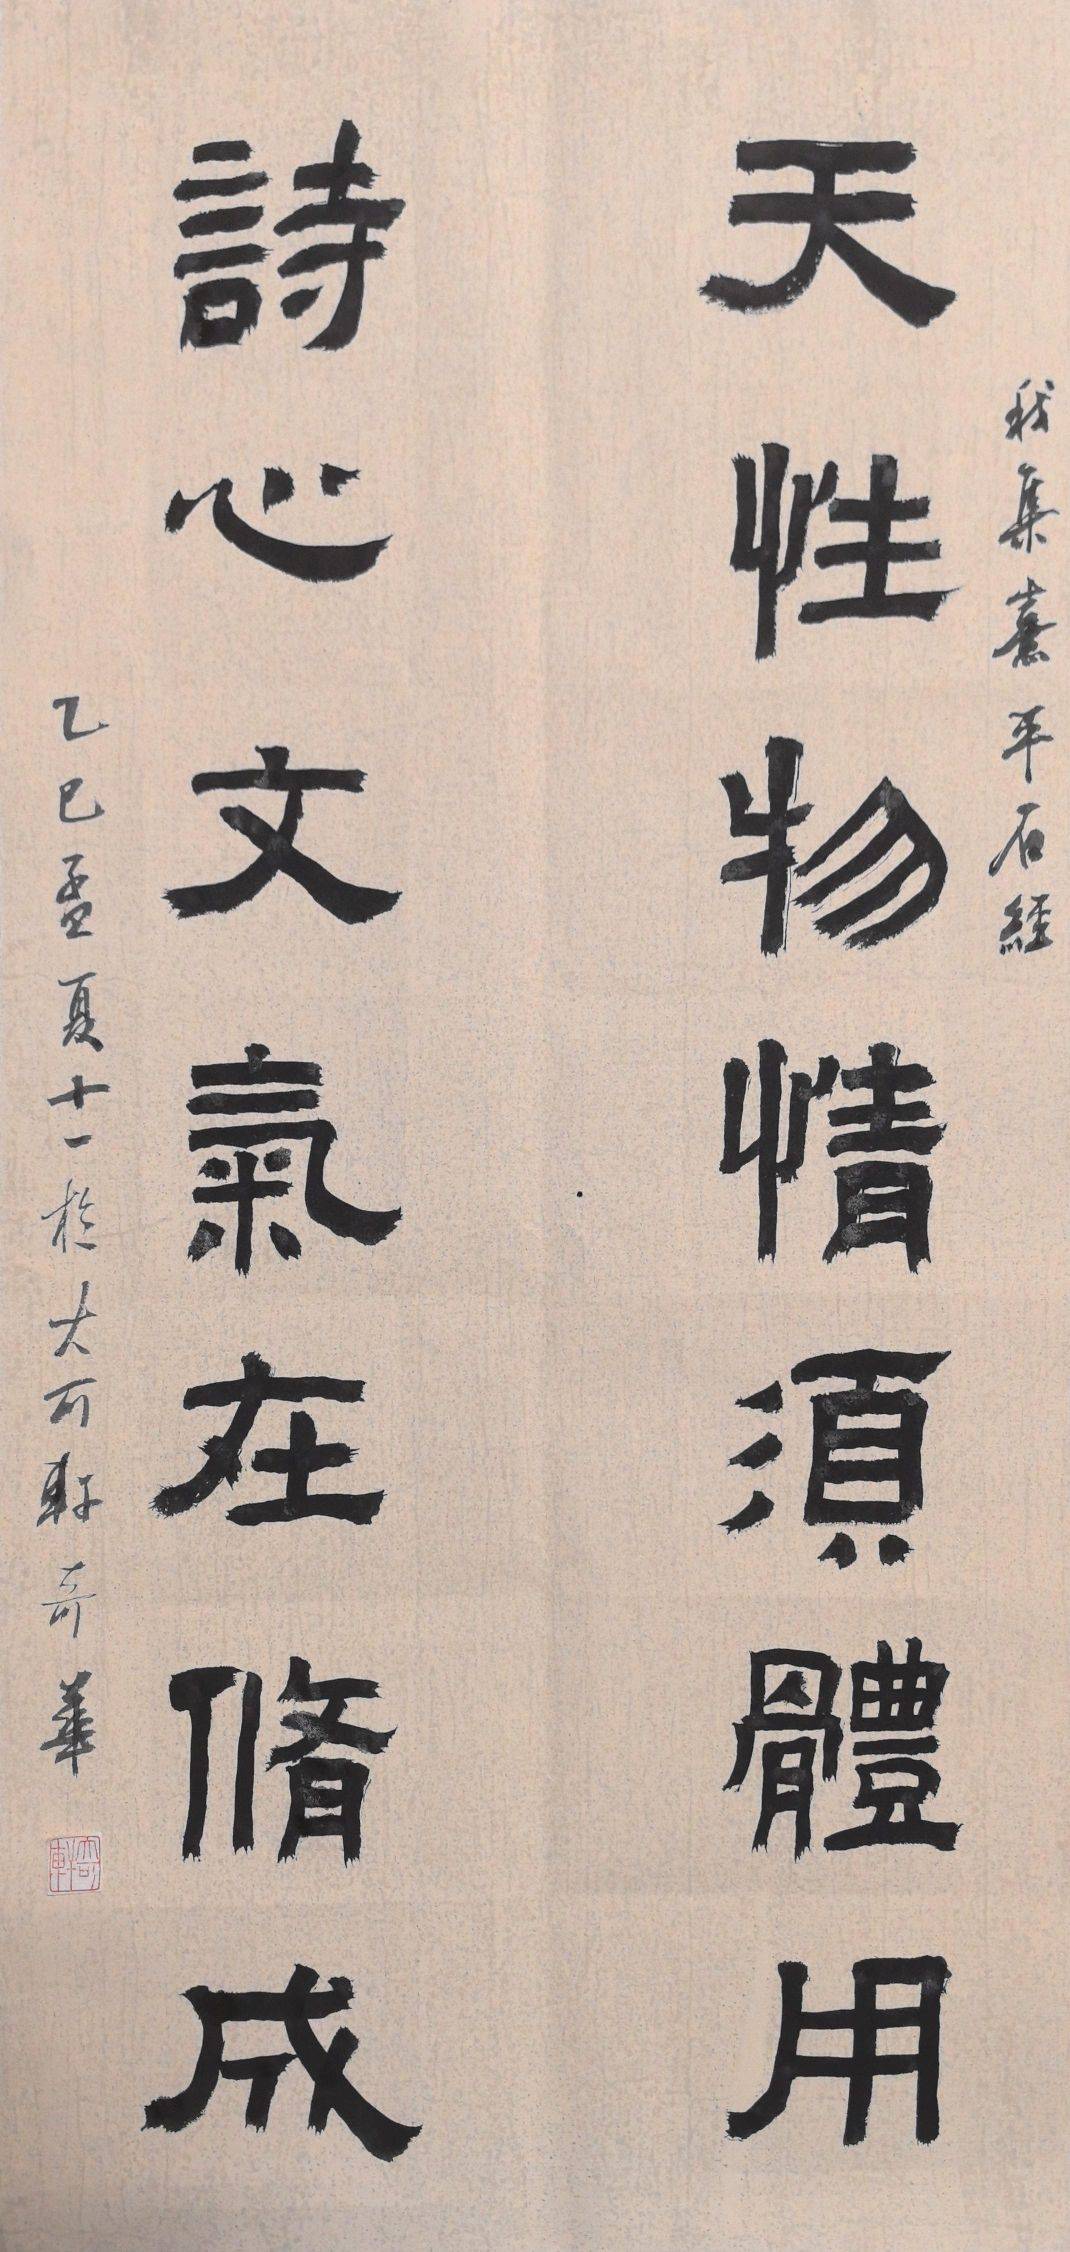 我集熹平石經
天性物情須體用
詩心文氣在脩成
乙巳孟夏十一於大可軒奇華